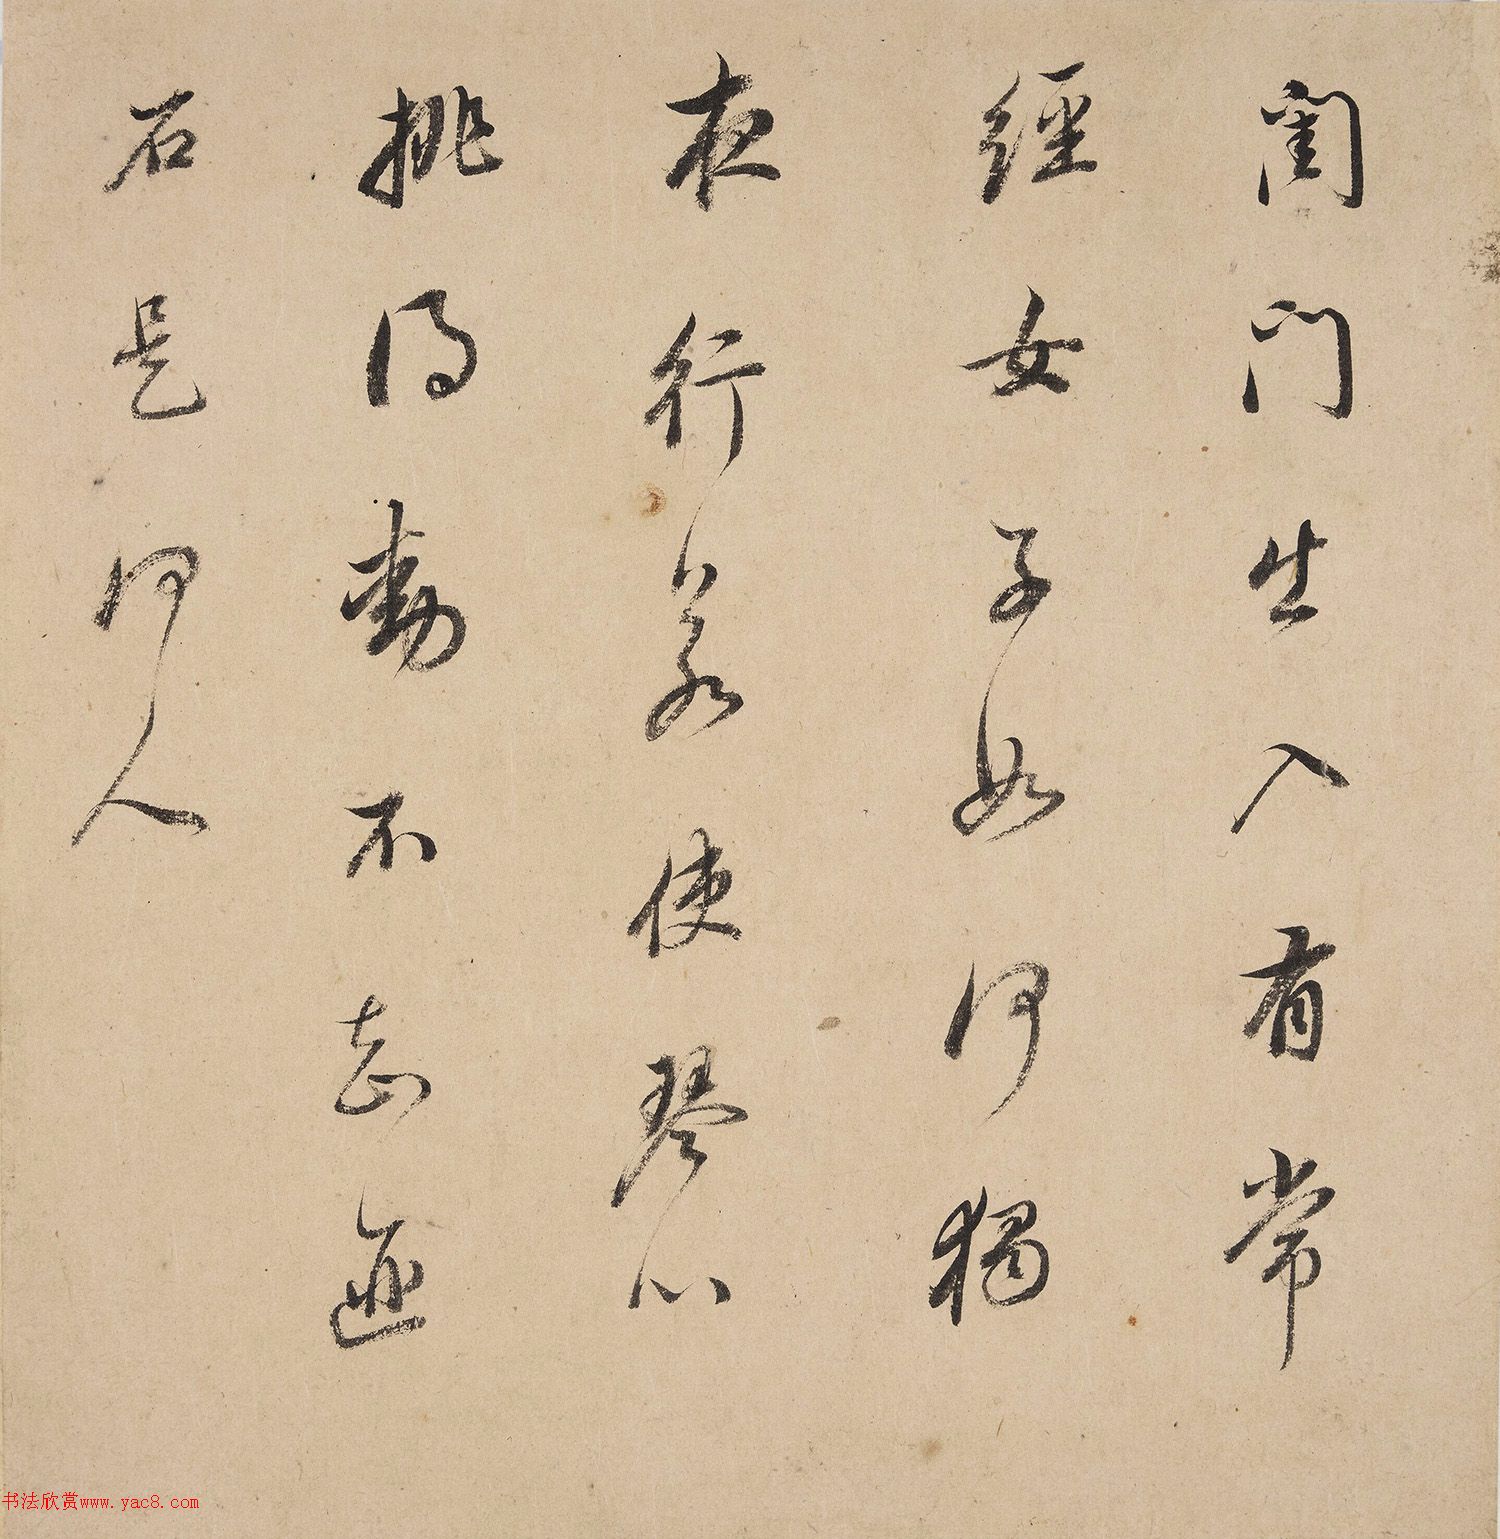 閨門出入有常
經女子如何獨
夜行若使琴心
挑得動不知匪
石是何人
书法欣赏www.yac8.com